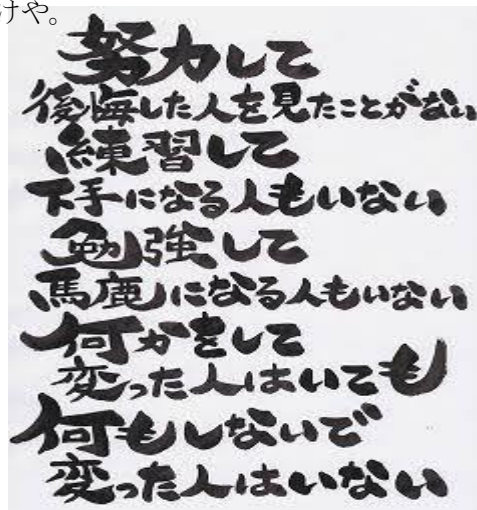 けや。
努力して
後悔した人を見たことがない
練習して
下手になる人もいない
勉強して
馬鹿になる人もいない
何かをして
変った人はいても
何もしないで
変った人はいない